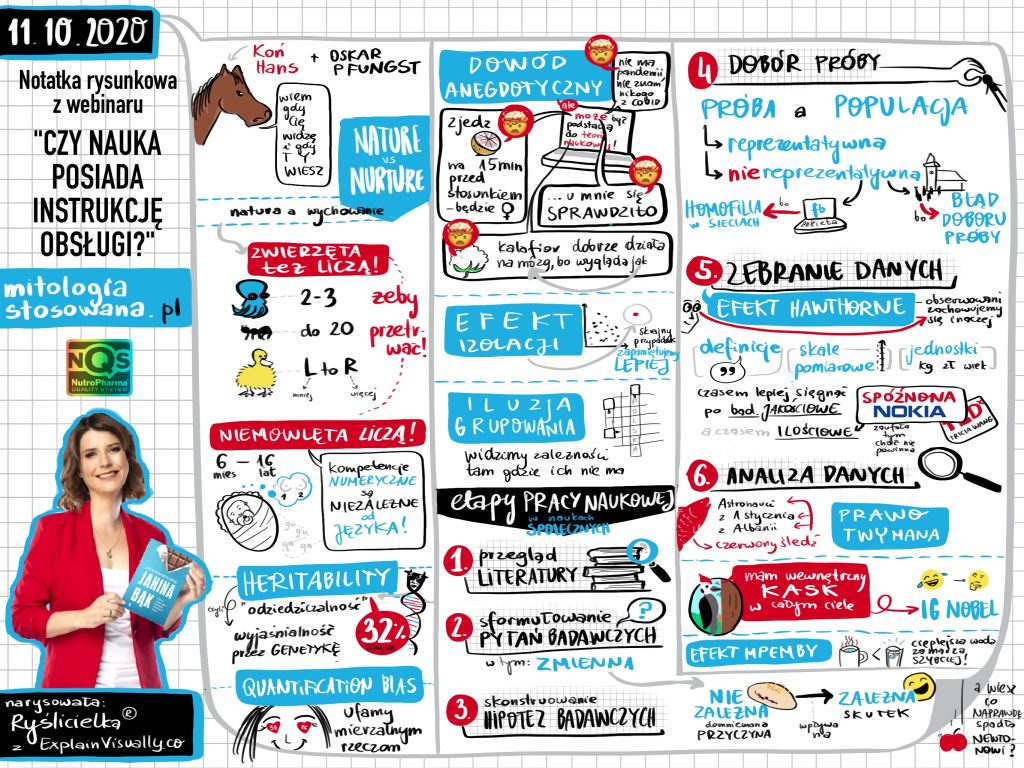 11.10.2020
Notatka rysunkowa
z webinaru
"CZY NAUKA
POSIADA
INSTRUKCJĘ
OBSŁUGI?"
mitologia
stosowana.pl
NQS
NutroPharma®
QUALITY SYSTEM
JANINA
BĄK
narysowała:
Ryślicielka®
z ExplainVisually.co
Koń
Hans
+ OSKAR
PFUNGST
wiem
gdy
Cię
widzę
i gdy
TY
WIESZ
NATURE
vs
NURTURE
natura a wychowanie
ZWIERZĘTA
też LICZĄ!
2-3
do 20
L to R
mniej
więcej
żeby
przetr-
wać!
NIEMOWLĘTA LICZĄ!
6 – 16
mies
lat
1 2
ga ga
gu gu
kompetencje
NUMERYCZNE
są
NIEZALEŻNE
od
JĘZYKA!
HERITABILITY
czyli
"odziedziczalność"
wyjaśnialność
przez GENETYKĘ
32%
QUANTIFICATION BIAS
Ufamy
mierzalnym
rzeczom
DOWÓD
ANEGDOTYCZNY
nie ma
pandemii
nie znam
nikogo
z COVID
zjedz
na 15 min
przed
stosunkiem
– będzie ♀
ale
może być
podstawą
do teorii
naukowej!
... u mnie się
SPRAWDZIŁO
kalafior dobrze działa
na mózg, bo wygląda jak
EFEKT
IZOLACJI
skrajny
przypadek
zapamiętujemy
LEPIEJ
ILUZJA
GRUPOWANIA
widzimy zależności
tam gdzie ich nie ma
etapy PRACY NAUKOWEJ
w naukach
SPOŁECZNYCH
1. przegląd
LITERATURY
2. sformułowanie
PYTAŃ BADAWCZYCH
?
w tym: ZMIENNA
3. skonstruowanie
HIPOTEZ BADAWCZYCH
4 DOBÓR PRÓBY
PRÓBA a POPULACJA
reprezentatywna
niereprezentatywna
HOMOFILIA
w SIECIACH
bo
fb
ankieta
bo
BŁĄD
DOBORU
PRÓBY
5. ZEBRANIE DANYCH
EFEKT HAWTHORNE
– obserwowani
zachowujemy
się inaczej
definicje
skale
pomiarowe
jednostki
kg zł wiek
czasem lepiej sięgnąć
po bad. JAKOŚCIOWE
a czasem ILOŚCIOWE
SPÓŹNIONA
NOKIA
zaufała
tym
choć nie
powinna
TEDx
TRICIA WANG
6. ANALIZA DANYCH
Astronauci
z 1 stycznia
z Albanii
czerwony śledź
PRAWO
TWYMANA
mam wewnętrzny
KASK
w całym ciele
IG NOBEL
EFEKT MPEMBY
cieplejsza woda
zamarza
szybciej!
NIE
ZALEŻNA
domniemana
PRZYCZYNA
wpływa
na
ZALEŻNA
SKUTEK
a wiesz
co
NAPRAWDĘ
spadło
NEWTO-
NOWI?